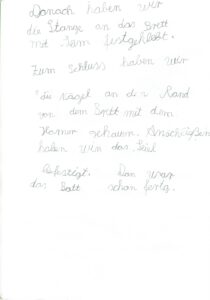 Danach haben wir
die Stange an das Brett
mit Leim festgeklebt.
Zum schluss haben wir
die Nägel an den Rand
von dem Brett mit dem
Hamer gehauen. Anschlißen
haben wir das Seil
befestigt. Dan war
das Bott schon fertg.